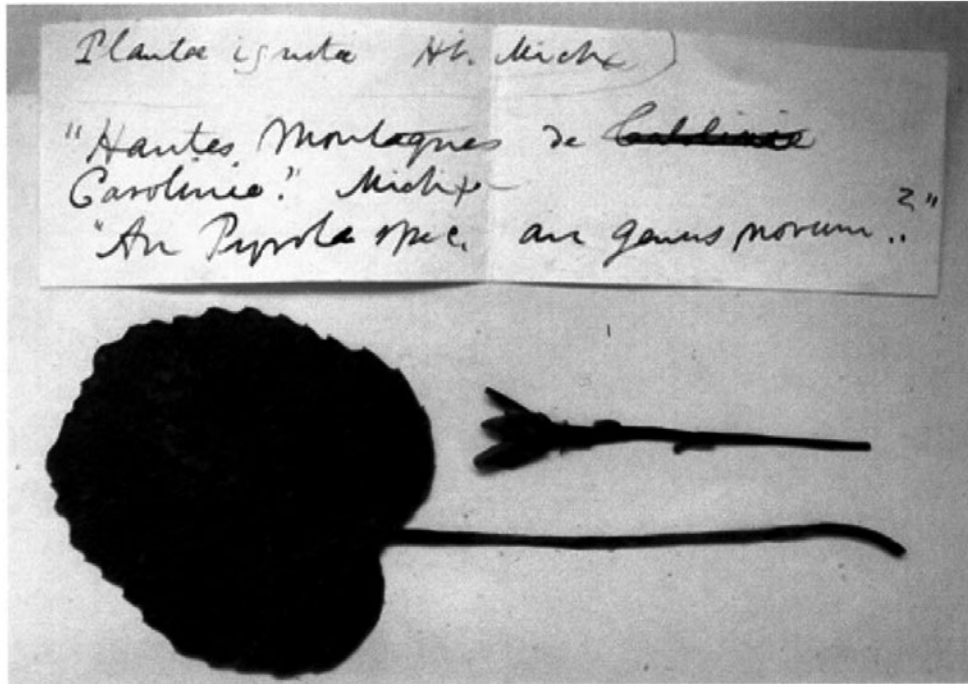 Planta ignota Hb. Michx)
"Hautes Montagnes de
Carolinie." Michx
"An Pyrola spec. an genus novum..?"